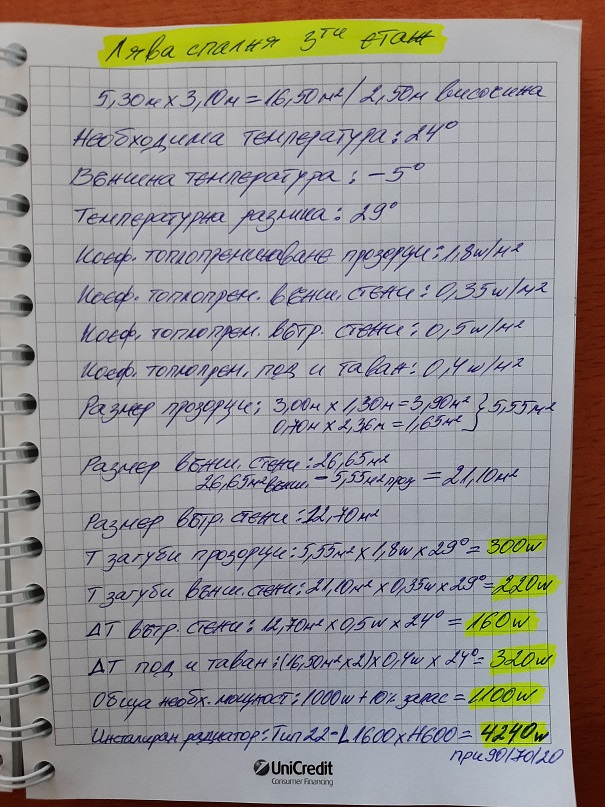 Лява спалня 3ти етаж
5,30м x 3,10м = 16,50м² / 2,50м височина
Необходима температура: 24°
Външна температура: -5°
Температурна разлика: 29°
Коеф. топлопреминаване прозорци: 1,8w/м²
Коеф. топлопрем. външ. стени: 0,35w/м²
Коеф. топлопрем. вътр. стени: 0,5w/м²
Коеф. топлопрем. под и таван: 0,4w/м²
Размер прозорци: 3,00м x 1,30м = 3,90м² } 5,55м²
0,70м x 2,36м = 1,65м²
Размер външ. стени: 26,65м²
26,65м² външ. - 5,55м² проз = 21,10м²
Размер вътр. стени: 12,70м²
Т загуби прозорци: 5,55м² x 1,8w x 29° = 300w
Т загуби външ. стени: 21,10м² x 0,35w x 29° = 220w
ΔТ вътр. стени: 12,70м² x 0,5w x 24° = 160w
ΔТ под и таван: (16,50м² x 2) x 0,4w x 24° = 320w
Обща необх. мощност: 1000w + 10% запас = 1100w
Инсталиран радиатор: Тип 22 - L1600 x H600 = 4240w
при 90/70/20
UniCredit
Consumer Financing